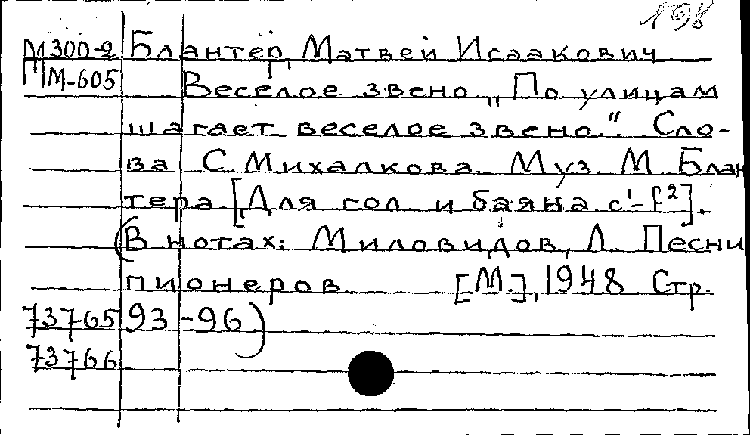 198
М300-2 Блантер, Матвей Исаакович
ПМ-605 Веселое звено „По улицам
шагает веселое звено“. Сло-
ва С. Михалкова. Муз. М. Блан
тера. [Для гол. и баяна c¹-f²].
(В нотах: Миловидов, Л. Песни
пионеров [М.], 1948 Стр.
73765 93-96)
73766